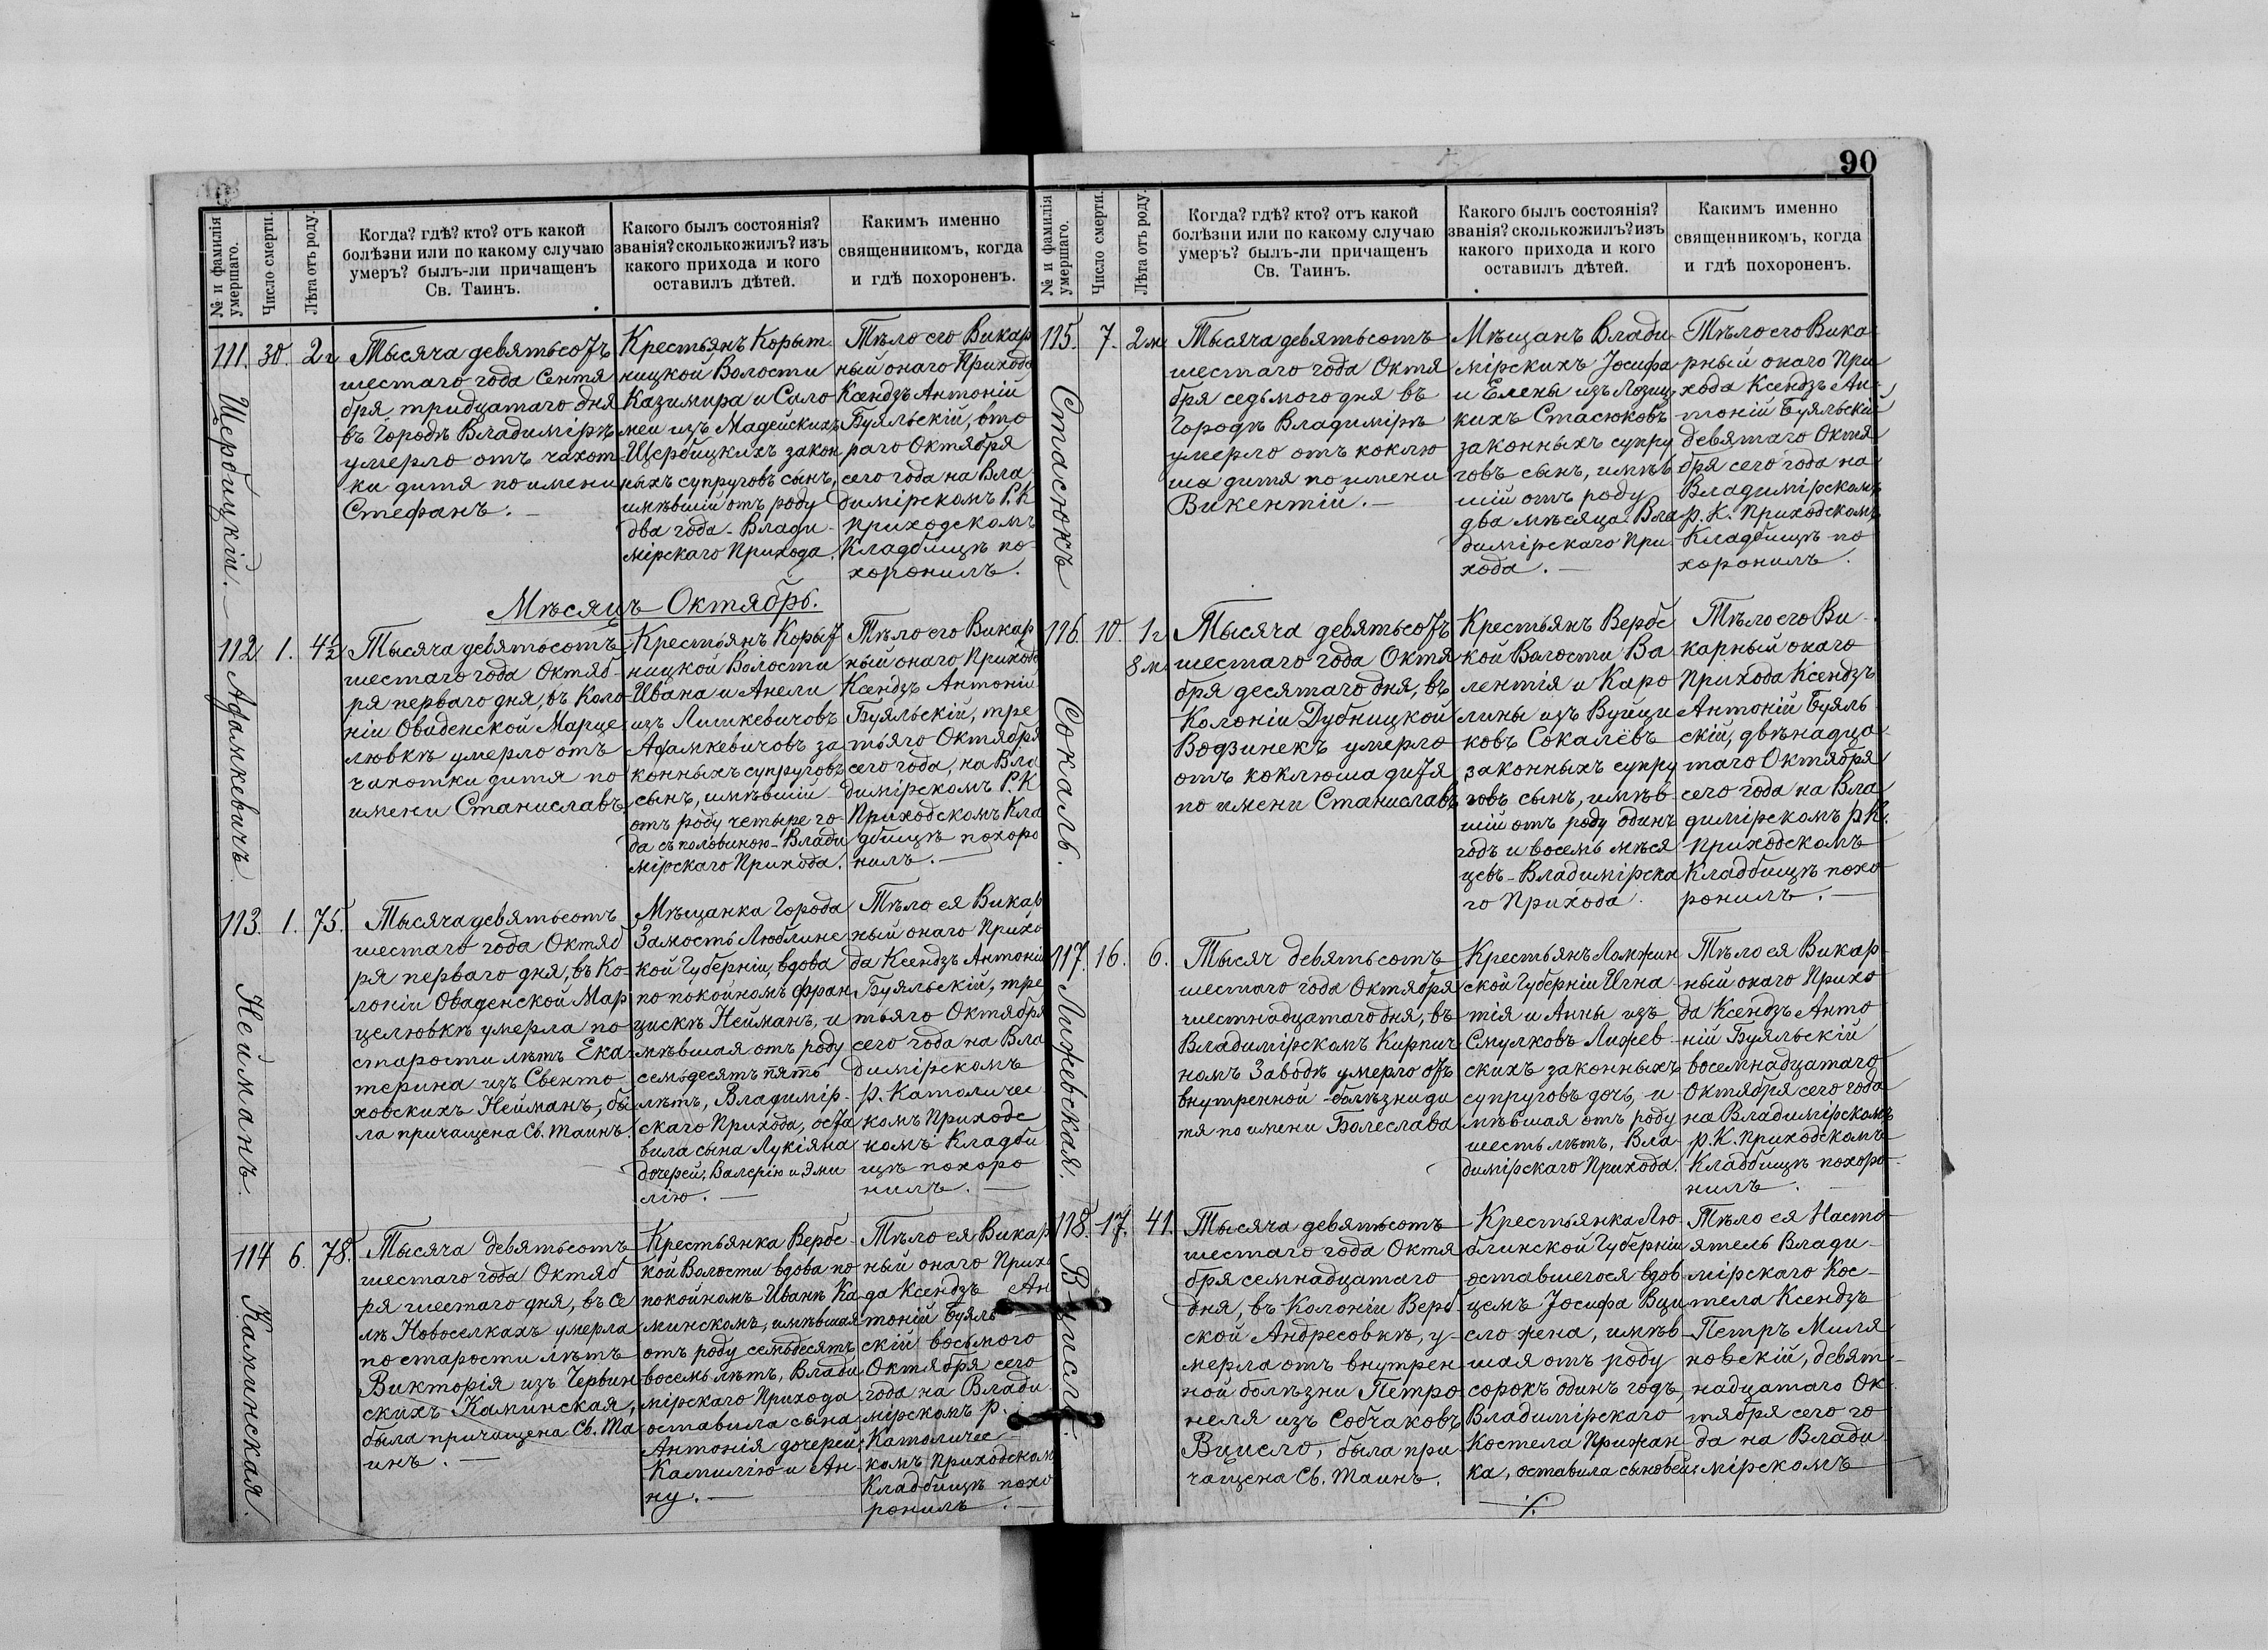 90
№ и фамилія
умершаго.
Число смерти.
Лѣта отъ роду.
Когда? гдѣ? кто? отъ какой
болѣзни или по какому случаю
умеръ? былъ-ли причащенъ
Св. Таинъ.
Какого былъ состоянія?
званія? сколько жилъ? изъ
какого прихода и кого
оставилъ дѣтей.
Какимъ именно
священникомъ, когда
и гдѣ похороненъ.
111.
Щербицкій.
30.
2 г
Тысяча девятьсотъ
шестаго года Сентя
бря тридцатаго дня
въ Городѣ Владимірѣ
умерло отъ чахот
ки дитя по имени
Стефанъ. —
Крестьянъ Корыт
ницкой Волости
Казимира и Сало
меи изъ Мадейскихъ
Щербицкихъ закон
ныхъ супруговъ сынъ,
имѣвшій отъ роду
два года - Влади
мірскаго Прихода.
Тѣло его Викар
ный онаго Прихода
Ксендзъ Антоній
Буяльскій, вто
раго Октября
сего года на Вла
димірскомъ Р. К
приходскомъ
Кладбищѣ по-
хоронилъ.
Мѣсяцъ Октябрь.
112
Адамкевичъ.
1.
4½
Тысяча девятьсотъ
шестаго года Октяб-
ря перваго дня, въ Коло
ніи Оваденской Марце
любкѣ умерло отъ
чахотки дитя по
имени Станиславъ.
Крестьянъ Корыт
ницкой Волости
Ивана и Анели
изъ Лишкевичовъ
Адамкевичовъ за
конныхъ супруговъ
сынъ, имѣвшій
отъ роду четыре го-
да съ половиною - Влади
мірскаго Прихода.
Тѣло его Викар
ный онаго Прихода
Ксендзъ Антоній
Буяльскій, тре
тьяго Октября
сего года, на Вла
димірскомъ Р. К
Приходскомъ Кла
дбищѣ похоро
нилъ. —
113.
Нейманъ.
1.
75.
Тысяча девятьсотъ
шестаго года Октяб
ря перваго дня, въ Ко-
лоніи Оваденской Мар
целювкѣ умерла по
старости лѣтъ Ека-
терина изъ Свенто
ховскихъ Нейманъ, бы
ла причащена Св. Таинъ.
Мѣщанка Города
Замость Люблинс
кой Губерніи, вдова
по покойномъ Фран
цискѣ Нейманъ, и
мѣвшая отъ роду
семьдесятъ пять
лѣтъ, Владимір-
скаго Прихода, оста
вила сына Лукіяна
дочерей, Валерію и Эми
лію. —
Тѣло ея Викар
ный онаго Прихо
да Ксендзъ Антоній
Буяльскій, тре
тьяго Октября
сего года на Вла
димірскомъ
р. Католичес
комъ Приходс
комъ Кладби
щѣ похоро
нилъ. —
114
Каминская.
6.
78.
Тысяча девятьсотъ
шестаго года Октяб
ря шестаго дня, въ се
лѣ Новоселкахъ умерла
по старости лѣтъ
Викторія изъ Червин
скихъ Каминская,
была причащена Св. Та
инъ. —
Крестьянка Вербс-
кой Волости вдова по
покойномъ Иванѣ Ка
минскомъ, имѣвшая
отъ роду семьдесятъ
восемь лѣтъ, Влади
мірскаго Прихода
оставила сына
Антонія дочерей;
Камилію и Ан-
ну. —
Тѣло ея Викар
ный онаго Прихо
да Ксендзъ Ан
тоній Буяль
скій восьмого
Октября сего
года на Влади
мірскомъ р.
Католичес
комъ Приходском
Кладбищѣ похо
ронилъ. —
№ и фамилія
умершаго.
Число смерти.
Лѣта отъ роду.
Когда? гдѣ? кто? отъ какой
болѣзни или по какому случаю
умеръ? былъ-ли причащенъ
Св. Таинъ.
Какого былъ состоянія?
званія? сколько жилъ? изъ
какого прихода и кого
оставилъ дѣтей.
Какимъ именно
священникомъ, когда
и гдѣ похороненъ.
115.
Стасюкъ
7.
2 м
Тысяча девятьсотъ
шестаго года Октя
бря седьмого дня въ
Городѣ Владимірѣ
умерло отъ коклю
ша дитя по имени
Викентій. —
Мѣщанъ Влади-
мірскихъ Іосифа
и Елены изъ Лозиц
кихъ Стасюковъ
законныхъ супру
говъ сынъ, имѣв
шій отъ роду
два мѣсяца - Вла
димірскаго При-
хода. —
Тѣло его Вика-
рный онаго При
хода Ксендзъ Ан-
тоній Буяльскій
девятаго Октя
бря сего года на
Владимірскомъ
р. К. Приходскомъ
Кладбищѣ по
хоронилъ.
116.
Сокаль.
10.
1 г
8 м
Тысяча девятьсотъ
шестаго года Октя
бря десятаго дня, въ
Колоніи Дубницкой
Водзинекъ умерло
отъ коклюша дитя
по имени Станиславъ
Крестьянъ Вербс
кой Волости Ва
лентія и Каро
лины изъ Вуйци
ковъ Сокалёвъ
законныхъ супру
говъ сынъ, имѣв-
шій отъ роду одинъ
годъ и восемь мѣся
цевъ - Владимірска
го Прихода.
Тѣло его Ви-
карный онаго
Прихода Ксендзъ
Антоній Буяль
скій, двѣнадца-
таго Октября
сего года на Вла
димірскомъ р. К.
Приходскомъ
Кладбищѣ похо
ронилъ. —
117.
Лижевская.
16.
6.
Тысяч девятьсотъ
шестаго года Октября
шестнадцатаго дня, въ
Владимірскомъ Кирпич
номъ Заводѣ умерло отъ
внутренной болѣзни ди
тя по имени Болеслава
Крестьянъ Ломжин
ской Губерніи Игна-
тія и Анны изъ
Смулковъ Лижев-
скихъ законныхъ
супруговъ дочь, и
мѣвшая отъ роду
шесть лѣтъ, Вла-
димірскаго Прихода.
Тѣло ея Викар-
ный онаго Прихо
да Ксендзъ Анто
ній Буяльскій
восемнадцатаго
Октября сего года
на Владимірскомъ
р. К. Приходскомъ
Кладбищѣ похоро-
нилъ. —
118.
Вцисло.
17.
41.
Тысяча девятьсотъ
шестаго года Октя
бря семнадцатаго
дня, въ Колоніи Верб-
ской Андресовкѣ, у-
мерла отъ внутрен
ной болѣзни Петро
неля изъ Собчаковъ
Вцисло, была при
чащена Св. Таинъ.
Крестьянка Лю-
блинской Губерніи
оставшегося вдов
цемъ Іосифа Вци
сло жена, имѣв-
шая отъ роду
сорокъ одинъ годъ,
Владимірскаго
Костела Прихожан
ка, оставила сыновей;
Тѣло ея Насто-
ятель Влади-
мірскаго Кос-
тела Ксендзъ
Петръ Миля
новскій, девят-
надцатаго Ок-
тября сего го
да на Влади-
мірскомъ